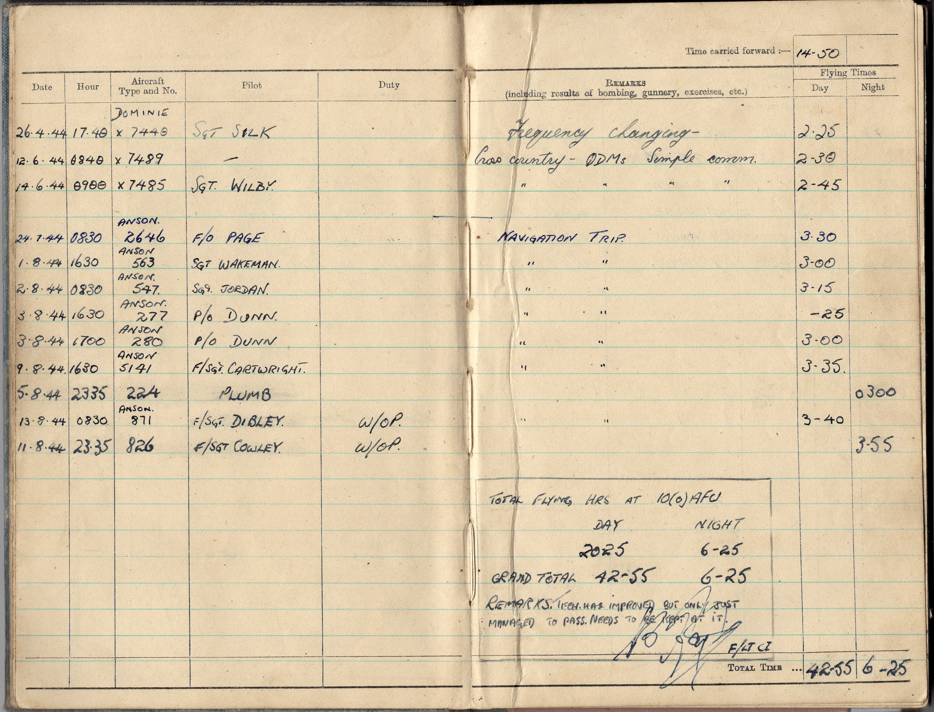 Time carried forward :— 14-50
Date Hour Aircraft Type and No. Pilot Duty REMARKS (including results of bombing, gunnery, exercises, etc.) Flying Times Day Night
DOMINIE
26·4·44 17·40 x 7440 SGT SILK Frequency changing- 2·25
12·6·44 0840 x 7489 — Cross country - QDMs Simple comm. 2-30
14·6·44 0900 x 7485 SGT. WILBY. " " " " 2-45
ANSON.
24·7·44 0830 2646 F/O PAGE NAVIGATION TRIP. 3·30
ANSON
1·8·44 1630 563 SGT WAKEMAN. " " 3-00
ANSON.
2·8·44 0830 547. SGT. JORDAN. " " 3-15
ANSON.
3·8·44 1630 277 P/O DUNN. " " -25
ANSON
3·8·44 1700 280 P/O DUNN " " 3-00
ANSON
9·8·44 1630 5141 F/SGT CARTWRIGHT. " " 3-35.
5·8·44 2335 224 PLUMB 0300
ANSON.
13·8·44 0830 871 F/SGT. DIBLEY. W/OP. " " 3-40
11·8·44 23·35 826 F/SGT COWLEY. W/OP. 3·55
TOTAL FLYING HRS AT 10(O)AFU
DAY NIGHT
2025 6-25
GRAND TOTAL 42-55 6-25
REMARKS. TECH. HAS IMPROVED BUT ONLY JUST
MANAGED TO PASS. NEEDS TO BE KEPT AT IT.
F/LT CI
TOTAL TIME ... 42-55 6-25